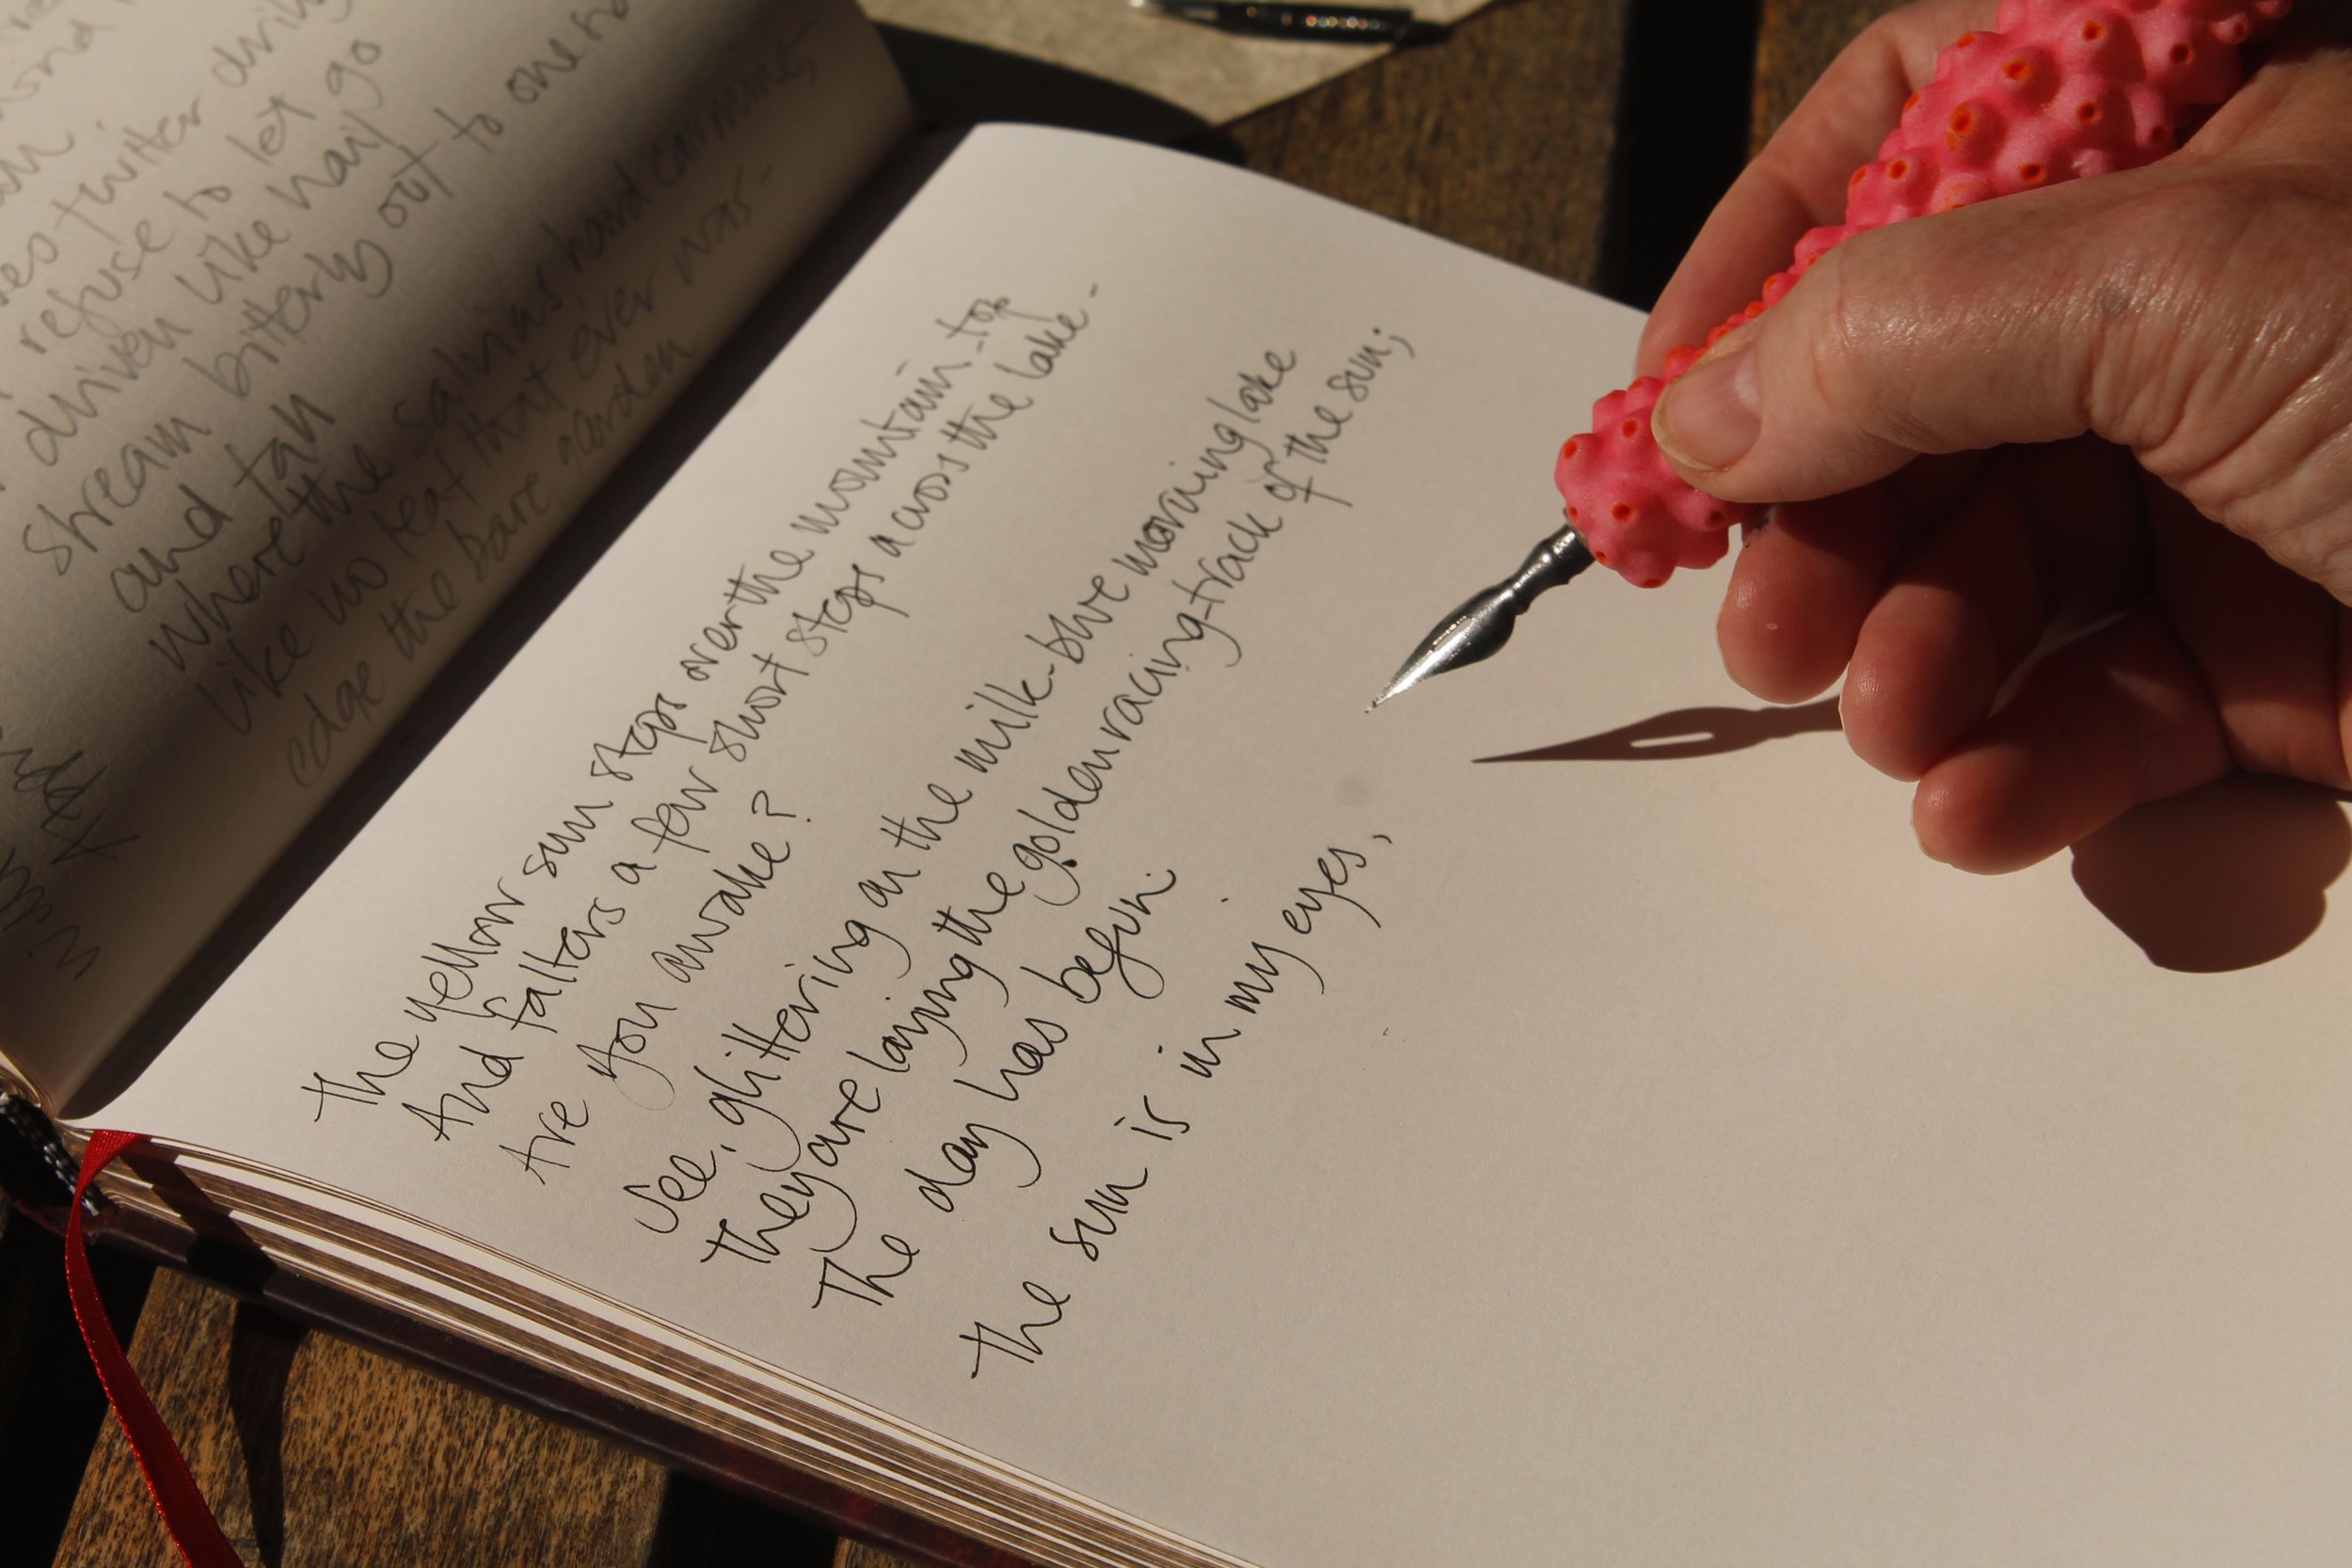 twitter
refuse to let go
driven like hail
stream bitterly out to one
and fall
where the salvias, hard carmine,
like no leaf that ever was-
edge the bare garden
The yellow sun steps over the mountain-top
And falters a few short steps across the lake-
Are you awake?
See, glittering on the milk-blue morning lake
They are laying the golden racing-track of the sun;
The day has begun.
The sun is in my eyes,